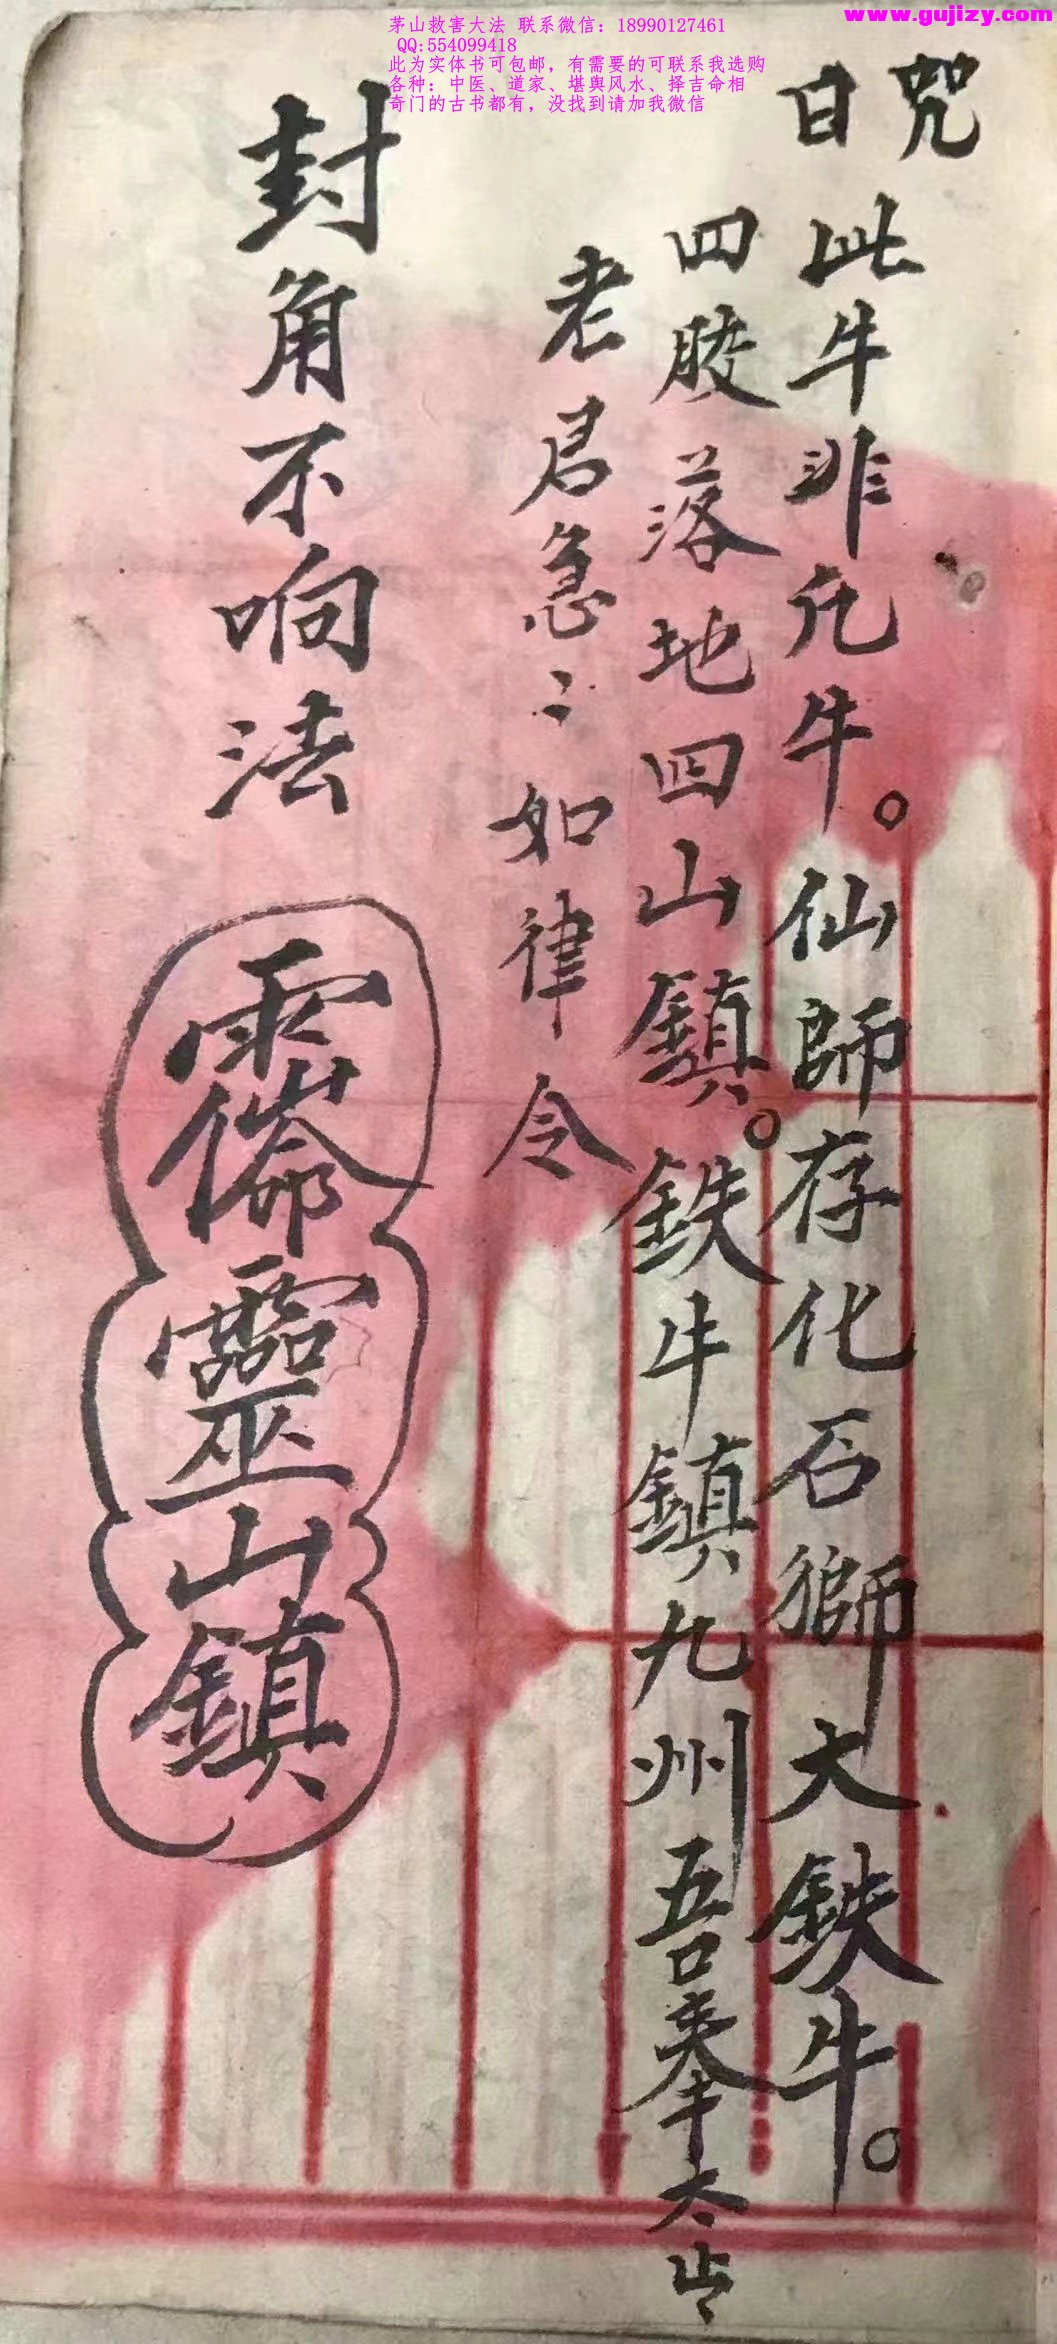 茅山救害大法 联系微信：18990127461
QQ:554099418
此为实体书可包邮，有需要的可联系我选购
各种：中医、道家、堪舆风水、择吉命相
奇门的古书都有，没找到请加我微信
www.gujizy.com
咒曰
此牛非凡牛。仙師存化石獅大鉄牛。
四脚落地四山鎮。鉄牛鎮九州吾奉太上
老君急〻如律令
封角不响法
靈山鎮